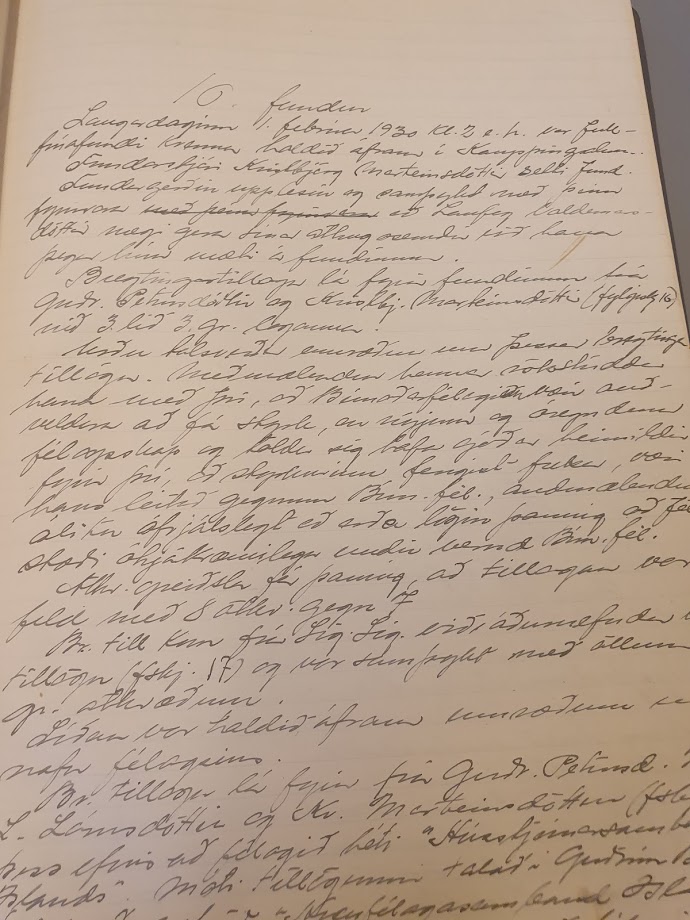 10. fundur
Laugardaginn 1. febrúar 1930 kl. 2 e.h. var full-
trúafundi kvenna haldið áfram í Kaupþingssaln.
Fundarstjóri Kristbjörg Marteinsdóttir setti fund.
Fundargerðin upplesin og samþykt með þeim
fyrirvara með þeim fyrirvara að Laufey Valdemars-
dóttir mægi gera sínar athugasemdir við hana
þegar hún mæti á fundinum.
Breytingartillaga lá fyrir fundinum frá
Guðr. Pétursdóttir og Kristbj. Marteinsdóttir (fylgiskj. 16)
við 3. lið 3. gr. laganna.
Urðu talsverðar umræður um þessa breytinga
tillögu. Meðmælendur hennar rökstuddu
hana með því, að Búnaðarfélaginu væri auð-
veldara að fá styrk, en nýjum og óreyndum
félagsskap og töldu sig hafa góðar heimildir
fyrir því, að styrkurinn fengist frekar, væri
hans leitað gegnum Bún. fél., andmælendur
álitu ófrjálslegt að orða lögin þannig að fél.
stæði óhjákvæmilega undir vernd Bún. fél.
Atkv. greiðsla fór þannig, að tillagan var
feld með 8 atkv. gegn 7
Br. till kom frá Sig. Sig. viðvíkjandi
tillögu (fskj. 17) og var samþykt með öllum
gr. atkvæðum.
Síðan var haldið áfram umræðum u
nafn félagsins.
Br. tillaga lá fyrir frá Guðr. Pétursd.
L. Lárusdóttir og Kr. Marteinsdóttir (fskj
þess efnis að félagið héti "Hússtjórnarsamb
Íslands". Móti tillögunni talaði Guðrún
"Kvenfélagasamband Ísl